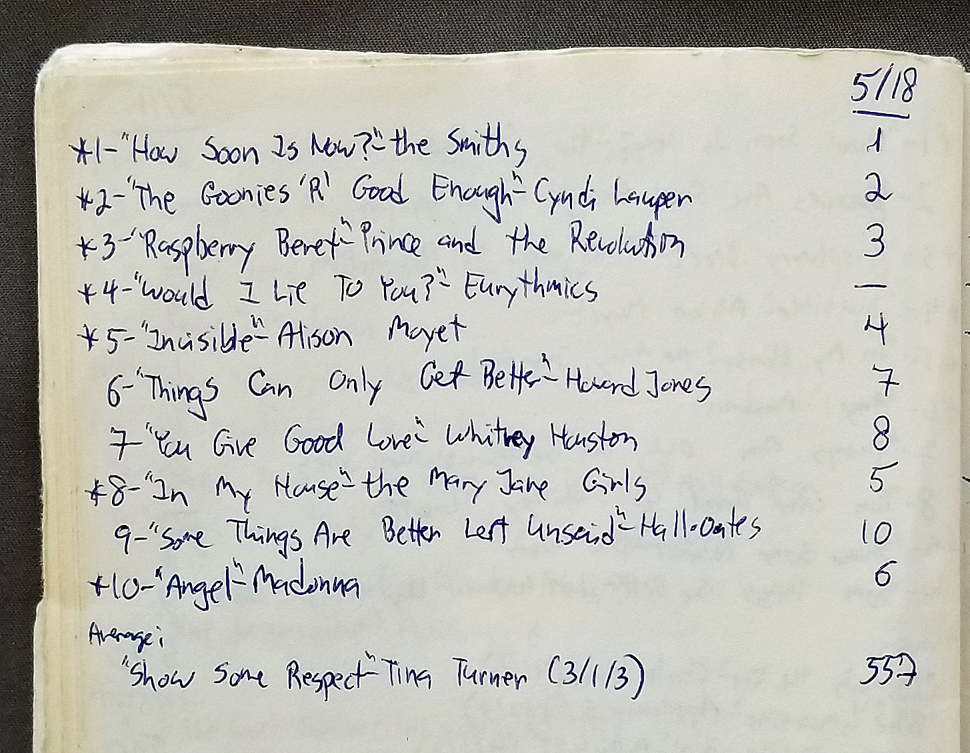 5/18
*1-"How Soon Is Now?"-the Smiths 1
*2-"The Goonies 'R' Good Enough"-Cyndi Lauper 2
*3-"Raspberry Beret"-Prince and the Revolution 3
*4-"Would I Lie To You?"-Eurythmics —
*5-"Invisible"-Alison Moyet 4
6-"Things Can Only Get Better"-Howard Jones 7
7-"You Give Good Love"-Whitney Houston 8
*8-"In My House"-the Mary Jane Girls 5
9-"Some Things Are Better Left Unsaid"-Hall-Oates 10
*10-"Angel"-Madonna 6
Average:
"Show Some Respect"-Tina Turner (3/1/3) 557